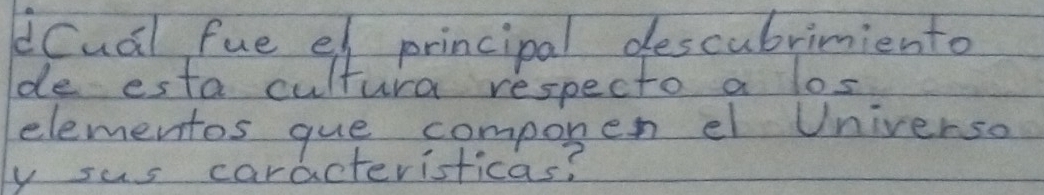 ¿Cuál fue el principal descubrimiento
de esta cultura respecto a los
elementos que componen el Universo
y sus carácterísticas?